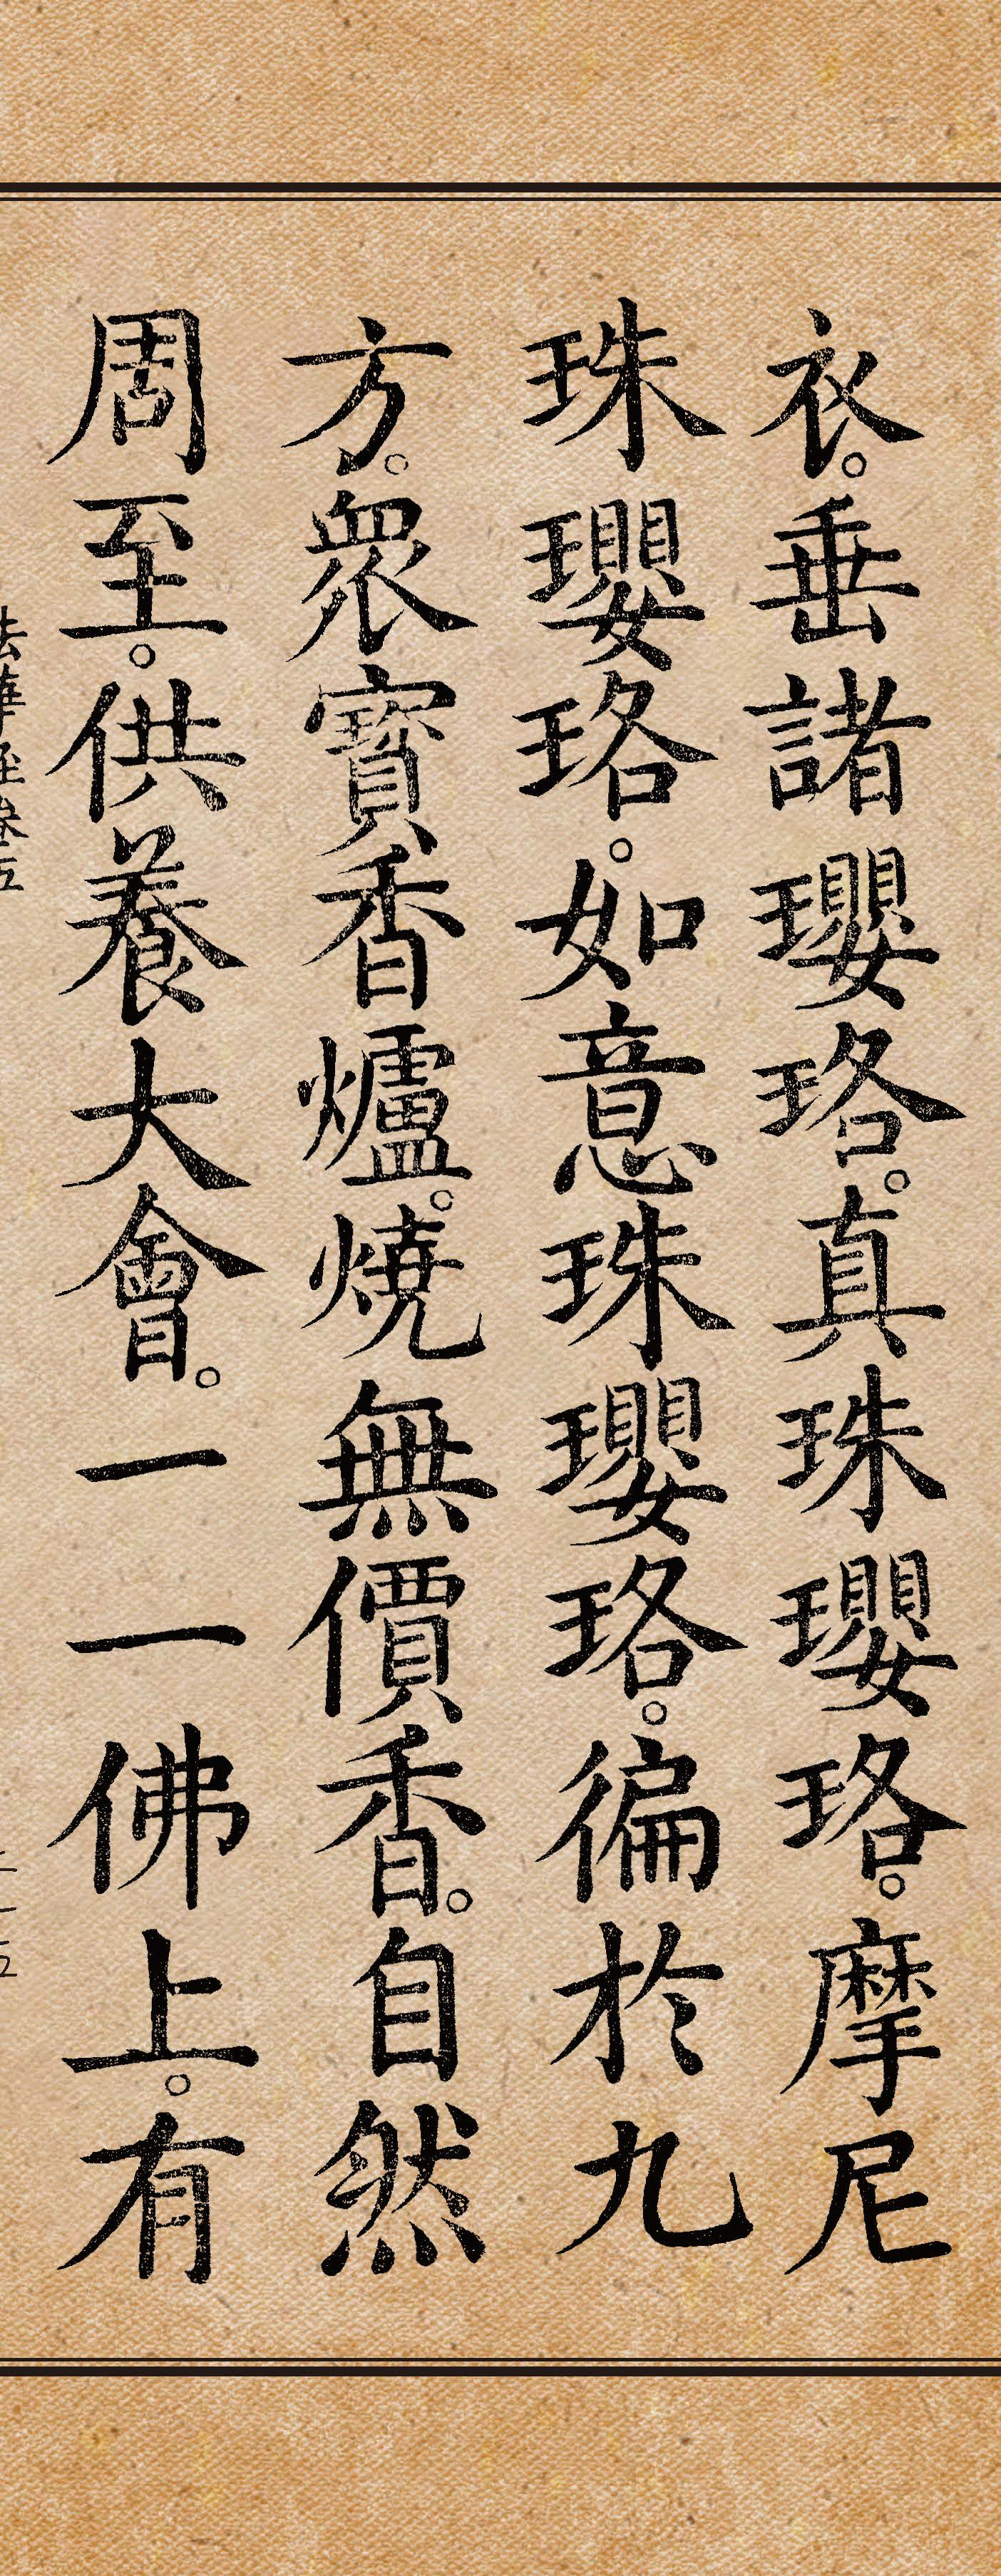 衣。垂諸瓔珞。真珠瓔珞。摩尼
珠瓔珞。如意珠瓔珞。徧於九
方。眾寶香爐。燒無價香。自然
周至。供養大會。一一佛上。有
法華經卷五